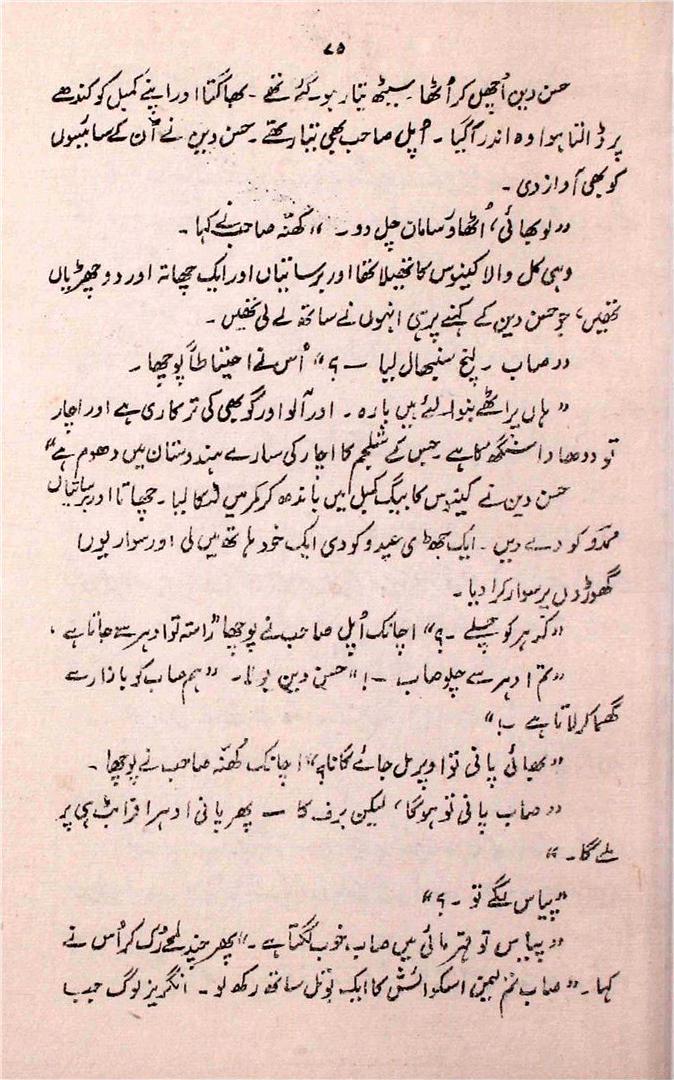 ۷۵
حسن دین اُچھل کر اُٹھا۔ سیٹھ تیار ہو گئے تھے۔ بھاگتا اور اپنے کمبل کو کندھے
پر ڈالتا ہوا وہ اندر آ گیا۔ اُپل صاحب بھی تیار تھے۔ حسن دین نے اُن کے سائیسوں
کو بھی آواز دی۔
”لو بھائی، اُٹھاؤ سامان چل دو۔“ کھنّہ صاحب نے کہا۔
وہی کل والا کینوس کا تھیلا تھا اور برساتیاں اور ایک چھاتہ اور دو چھڑیاں
تھیں، جو حسن دین کے کہنے پر ہی انہوں نے ساتھ لے لی تھیں۔
”صاب۔ لنچ سنبھال لیا —؟“ اُس نے احتیاطاً پوچھا۔
”ہاں پراٹھے بنوا لئے ہیں بارہ۔ اور آلو اور گوبھی کی ترکاری ہے اور اچار
تو ددھاوا سنگھ کا ہے۔ جس کے شلجم کا اچار کی سارے ہندستان میں دھوم ہے“
حسن دین نے کینوس کا بیگ کمبل میں باندھ کر کمر میں لٹکا لیا۔ چھاتا اور برساتیاں
ممدو کو دے دیں۔ ایک چھڑی عیدو کو دی ایک خود ہاتھ میں لی اور سواریوں کو
گھوڑوں پر سوار کرا دیا۔
”کدہر کو چلے۔؟“ اچانک اُپل صاحب نے پوچھا ”راستہ تو ادہر سے جاتا ہے،
”تم ادہر سے چلو صاب —!“ حسن دین بولا۔ ”ہم صاب کو بازار سے
گھما کر لاتا ہے۔!“
”بھائی پانی تو اوپر مل جائے گا نا؟“ اچانک کھنّہ صاحب نے پوچھا۔
”صاب پانی تو ہوگا، لیکن برف کا — پھر پانی ادہر افراٹ ہی پر
ملے گا۔“
”پیاس لگے تو۔؟“
”پیاس تو بہر مائی میں صاب خوب لگتا ہے۔“ پھر چند لمحے رُک کر اُس نے
کہا۔ ”صاب تم لیمن اسکوائش کا ایک بوتل ساتھ رکھ لو۔ انگریز لوگ جب